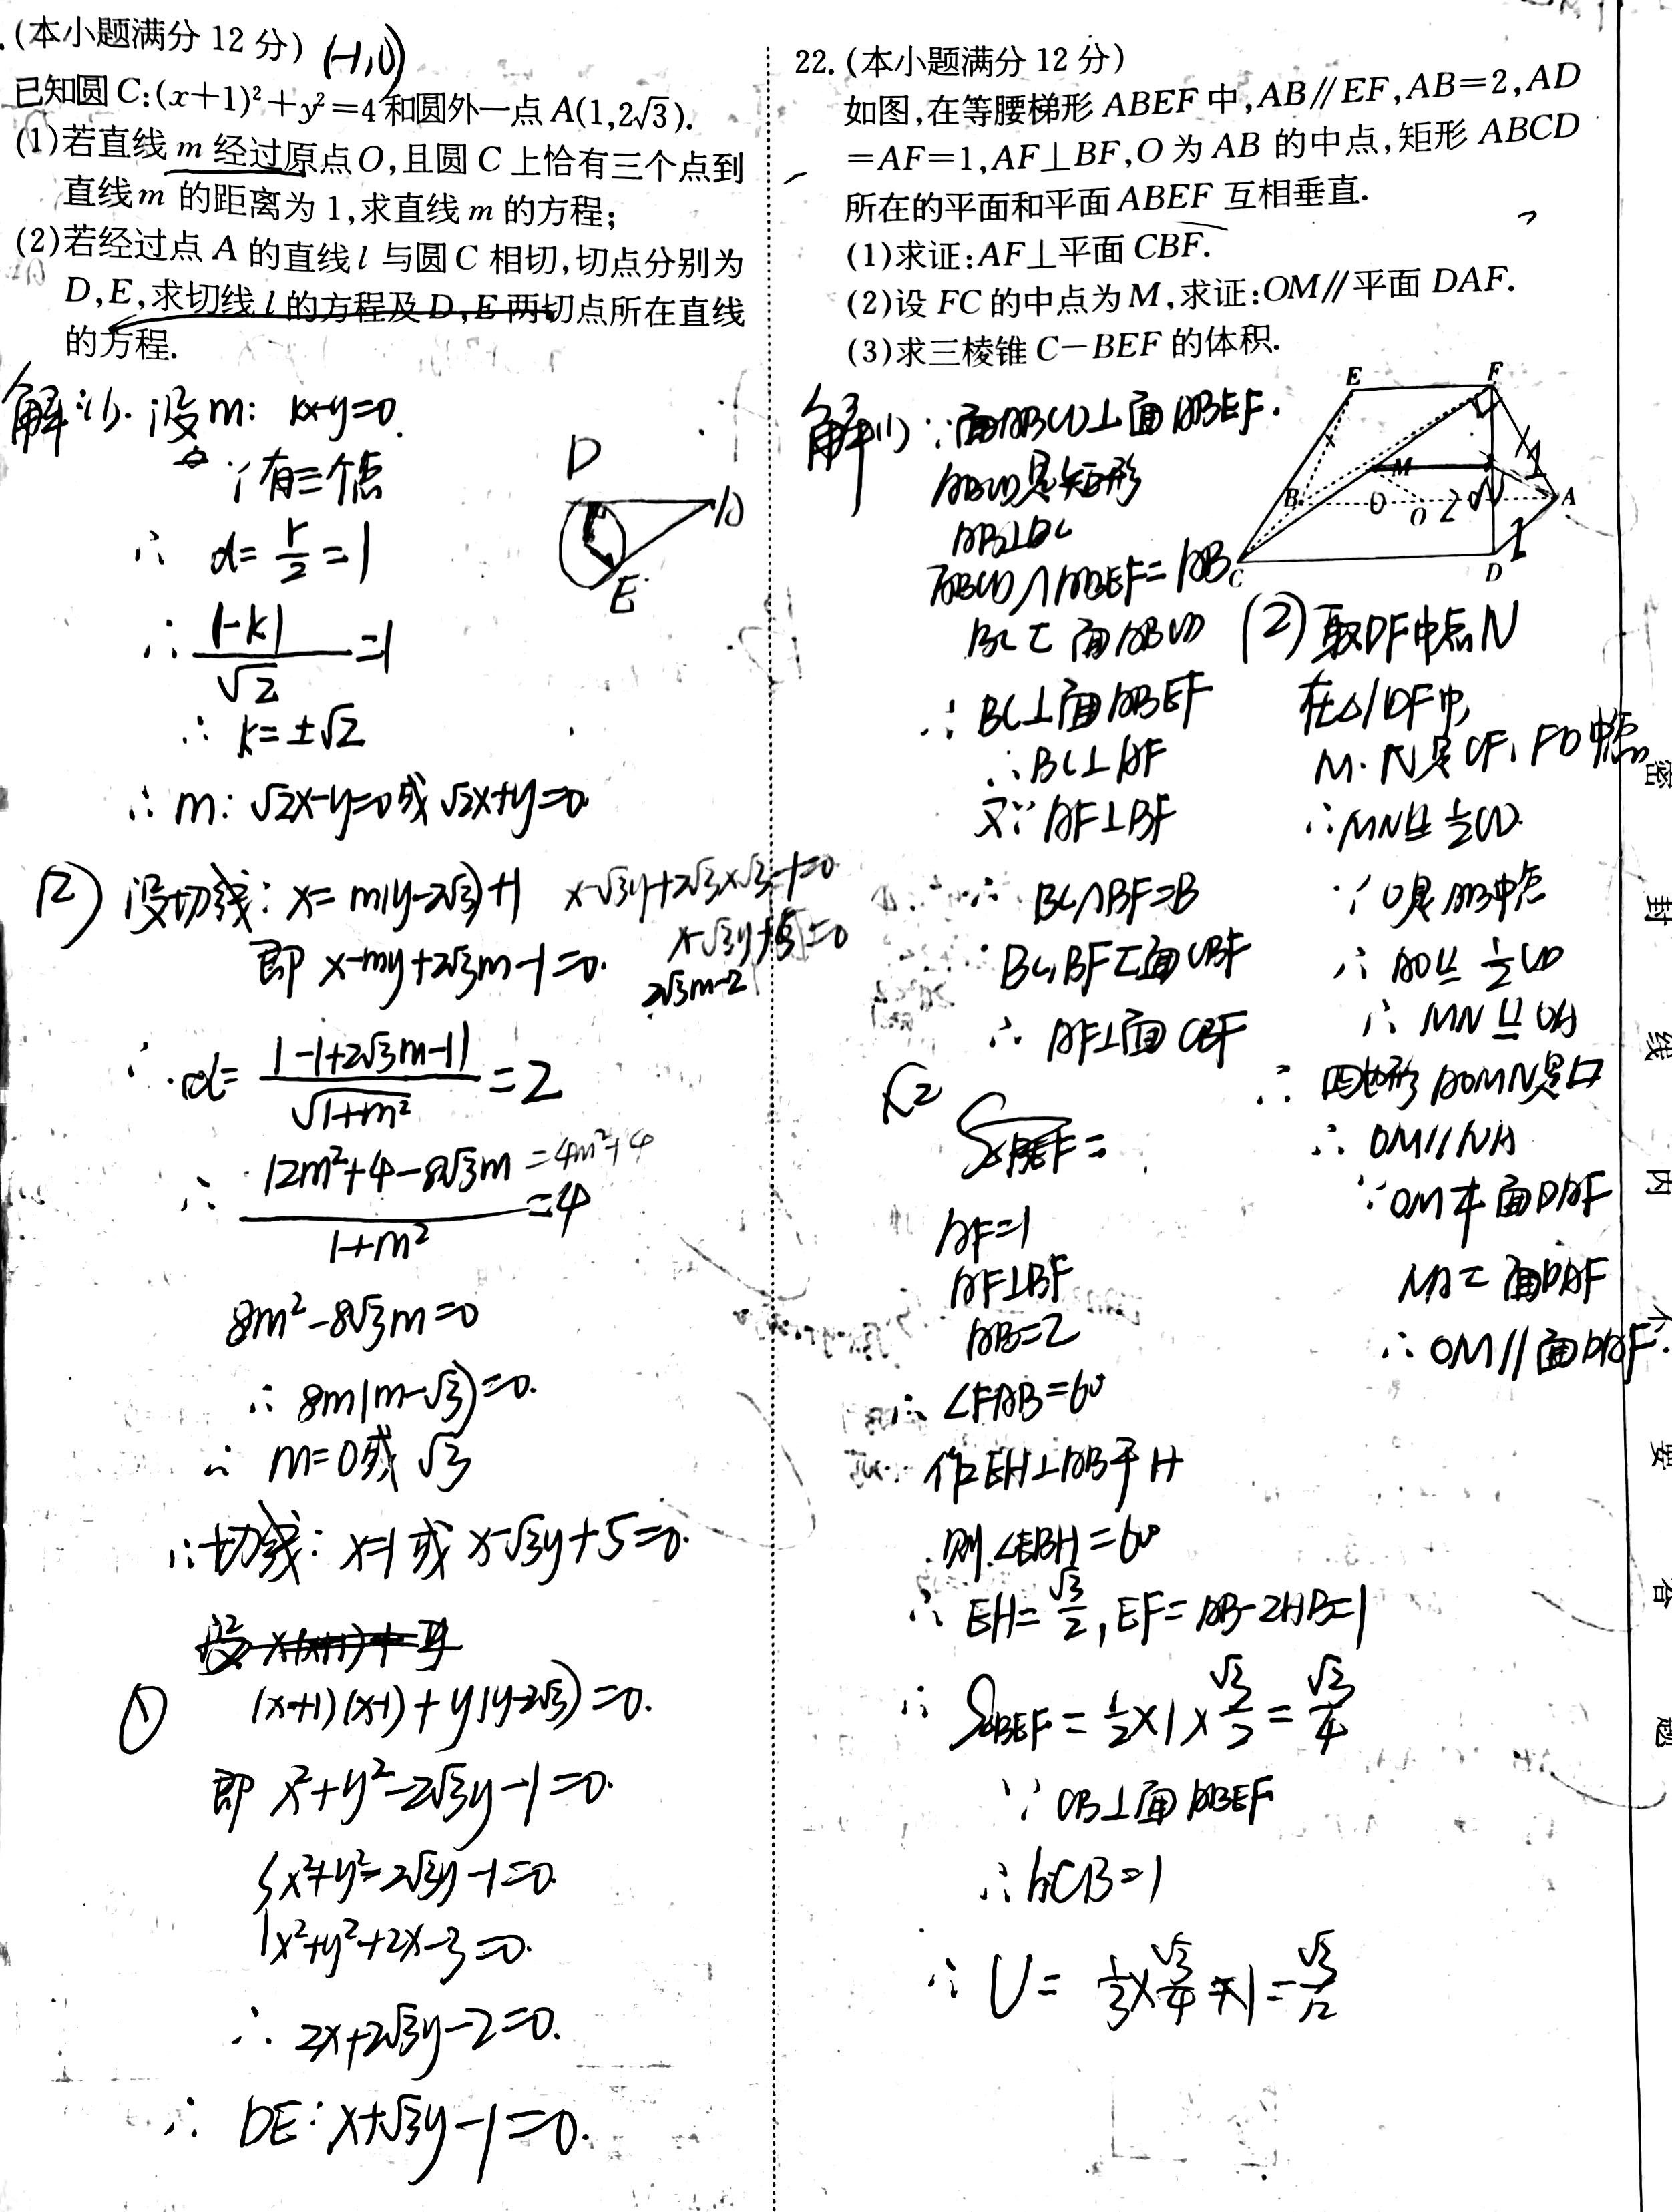 (本小题满分 12 分) (-1,0)
已知圆 C:(x+1)²+y²=4和圆外一点 A(1,2√3).
(1)若直线 m 经过原点O,且圆 C 上恰有三个点到
直线 m 的距离为 1,求直线 m 的方程;
(2)若经过点 A 的直线 l 与圆 C 相切,切点分别为
D,E,求切线 l 的方程及 D,E 两切点所在直线
的方程.
解:(1). 设m: kx-y=0.
∵有三个点
∴ d= r/2 =1
∴ |-k|/√2 =1
∴ k=±√2
∴ m: √2x-y=0或√2x+y=0.
D
A
E
(2) 设切线: x=m(y-2√3)+1
x-√3y+2√3×√3-1=0
即 x-my+2√3m-1=0.
x-√3y+5=0
2√3m-2
∴ d= |-1+2√3m-1|/√(1+m²) =2
∴ (12m²+4-8√3m)/(1+m²) =4
=4m²+4
8m²-8√3m=0
∴ 8m(m-√3)=0.
∴ m=0或√3
∴切线: x=1或x-√3y+5=0.
① (x+1)(x-1)+y(y-2√3)=0.
即 x²+y²-2√3y-1=0.
{x²+y²-2√3y-1=0.
x²+y²+2x-3=0.
∴ 2x+2√3y-2=0.
∴ DE: x+√3y-1=0.
22. (本小题满分 12 分)
如图,在等腰梯形 ABEF 中,AB∥EF,AB=2,AD
=AF=1,AF⊥BF,O 为 AB 的中点,矩形 ABCD
所在的平面和平面 ABEF 互相垂直.
(1)求证:AF⊥平面 CBF.
(2)设 FC 的中点为 M,求证:OM∥平面 DAF.
(3)求三棱锥 C-BEF 的体积.
E
F
M
N
B
O
2
A
1
1
C
D
解(1) ∵面ABCD⊥面ABEF.
ABCD是矩形
AB⊥BC
ABCD∩ABEF=AB
BC⊂面ABCD
∴BC⊥面ABEF
∴BC⊥AF
又∵AF⊥BF
∵ BC∩BF=B
BC,BF⊂面CBF
∴ AF⊥面CBF
(2) 取DF中点N
在△CDF中,
M.N是CF,FD中点
∴MN∥= ½CD.
∵O是AB中点
∴ AO∥= ½CD
∴ MN∥=OA
∴ 四边形AOMN是▱
∴ OM∥NA
∵OM⊄面DAF
NA⊂面DAF
∴OM∥面DAF.
S△BEF=
AF=1
AF⊥BF
AB=2
∴ ∠FAB=60°
作EH⊥AB于H
则∠EBH=60°
∴ EH=√3/2, EF=AB-2HB=1
∴ S△BEF= ½×1×√3/2 = √3/4
∵ CB⊥面ABEF
∴h=CB=1
∴ V= ⅓×√3/4×1=√3/12
密
封
线
内
不
要
答
题